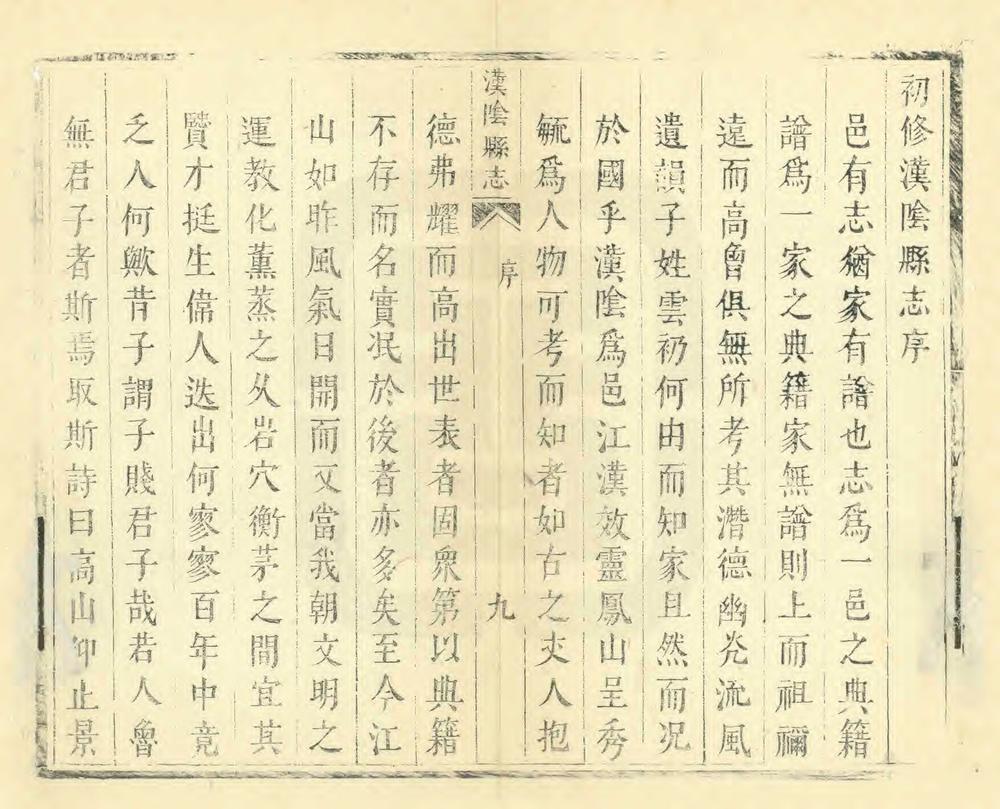 初修漢陰縣志序
邑有志猶家有譜也志爲一邑之典籍
譜爲一家之典籍家無譜則上而祖禰
遠而高曾俱無所考其潛德幽光流風
遺韻子姓雲礽何由而知家且然而况
於國乎漢陰爲邑江漢效靈鳳山呈秀
毓爲人物可考而知者如古之丈人抱
漢陰縣志
序
九
德弗耀而高出世表者固衆第以典籍
不存而名實泯於後者亦多矣至今江
山如昨風氣日開而又當我朝文明之
運教化薰蒸之久岩穴衡茅之間宜其
賢才挺生偉人迭出何寥寥百年中竟
乏人何歟昔子謂子賤君子哉若人魯
無君子者斯焉取斯詩曰高山仰止景